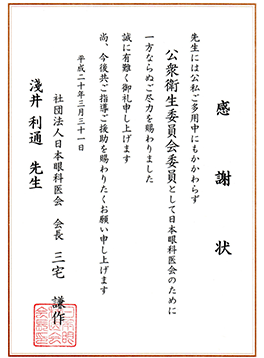 感謝状
先生には公私ご多用中にもかかわらず
公衆衛生委員会委員として日本眼科医会のために
一方ならぬご尽力を賜わりました
誠に有難く御礼申し上げます
尚、今後共ご指導ご援助を賜わりたくお願い申し上げます
平成二十年三月三十一日
社団法人日本眼科医会 会長 三宅 謙作
浅井 利通 先生